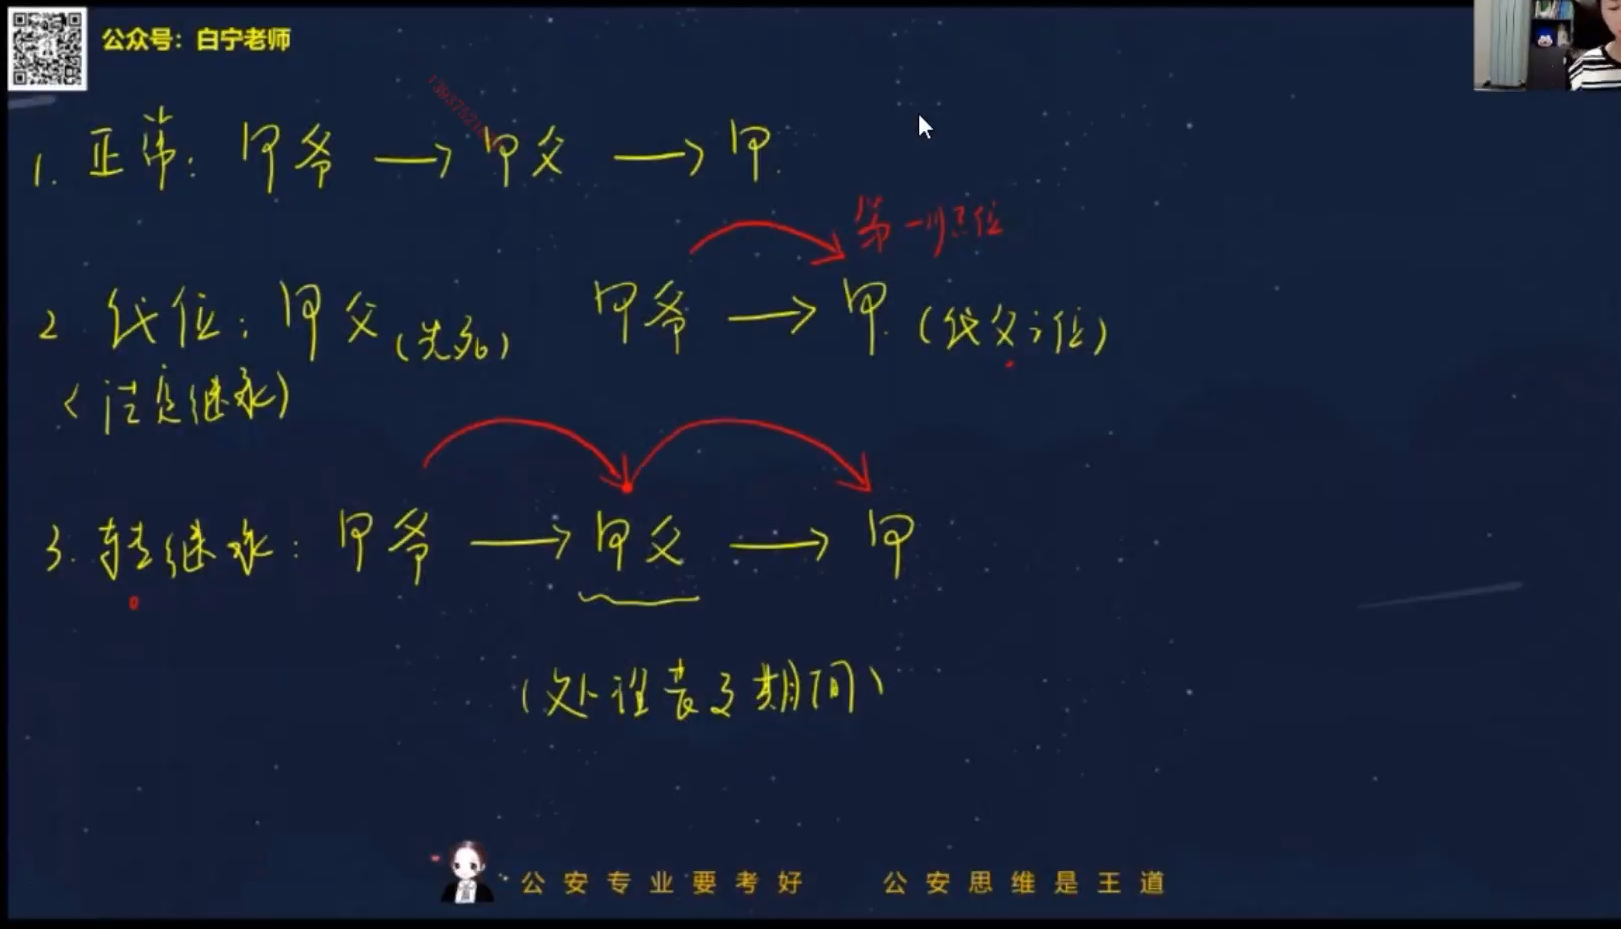 公众号：白宁老师
1. 正常：甲爷 → 甲父 → 甲
第一顺位
2 代位：甲父（先死） 甲爷 → 甲（代父之位）
（法定继承）
3. 转继承：甲爷 → 甲父 → 甲
（处理丧事期间）
公安专业要考好 公安思维是王道